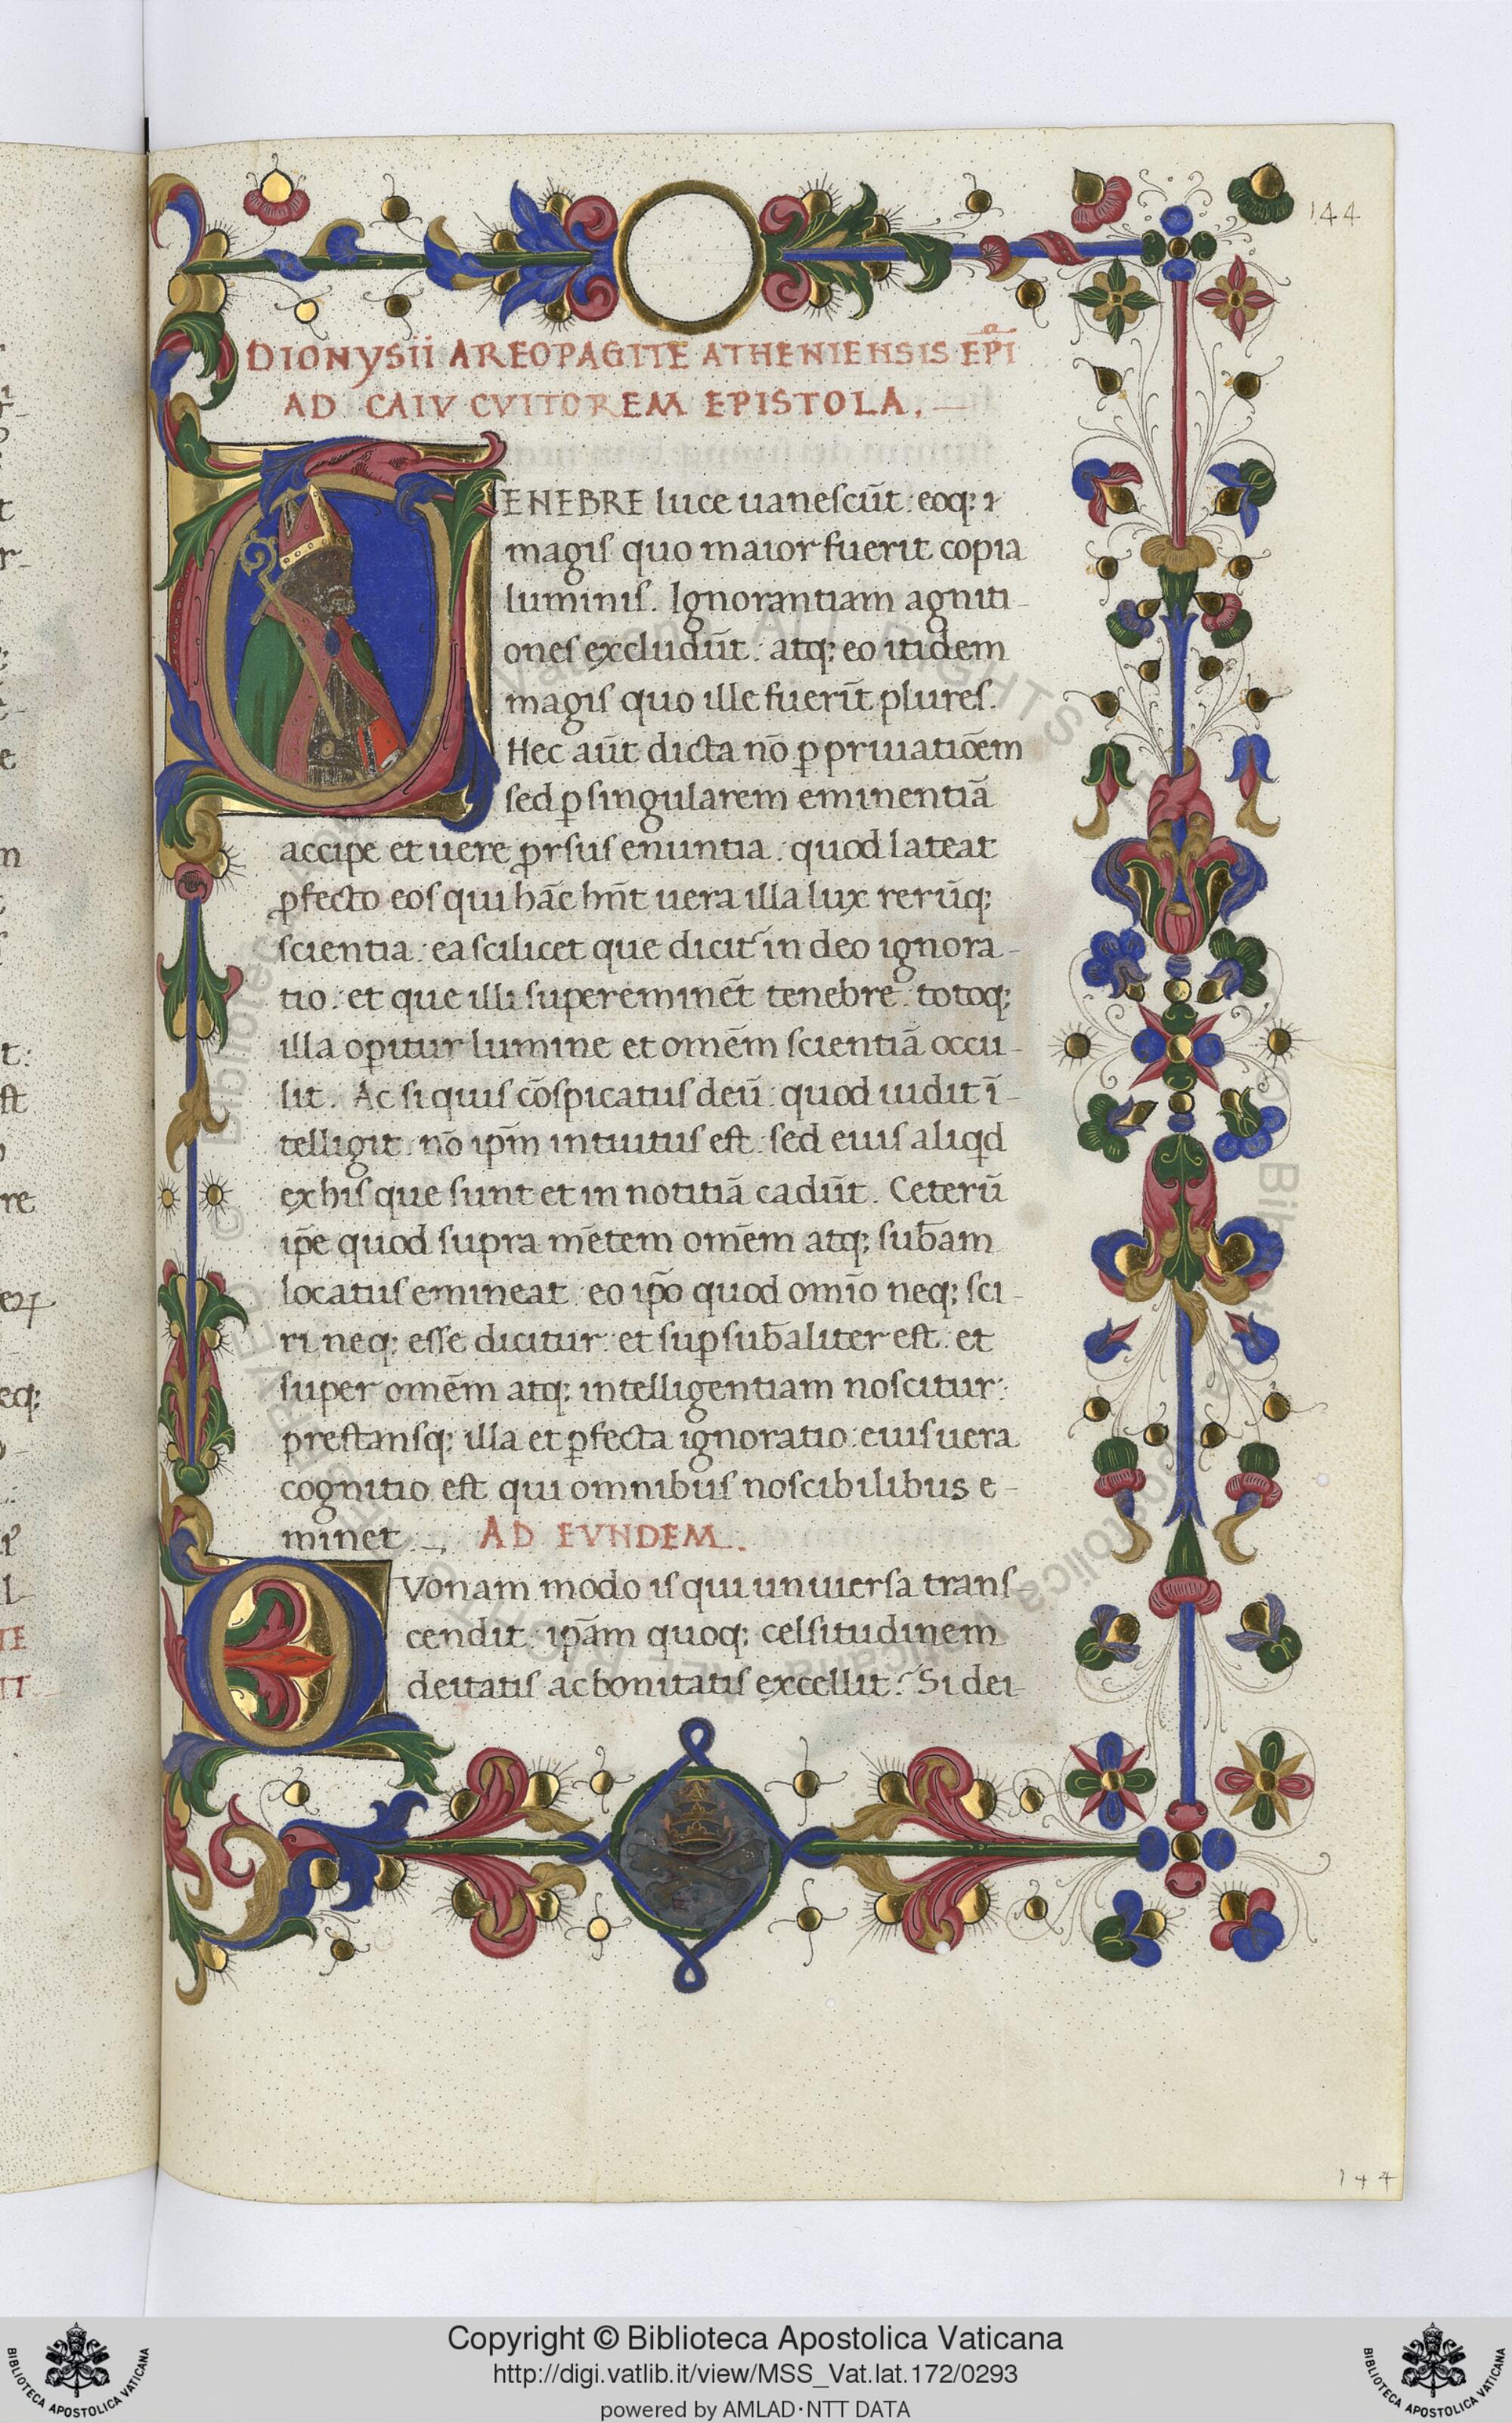 144
DIONYSII AREOPAGITE ATHENIENSIS EPĪ
AD CAIV CVITOREM EPISTOLA.
TENEBRE luce uanescūt: eoq; ı
magis quo maior fuerit copia
luminis. Ignorantiam agniti-
ones excludūt: atq; eo itidem
magis quo ille fuerīt plures.
Hec aūt dicta nō ꝑ priuatiōem
sed ꝑ singularem eminentiā
accipe et uere ꝓrsus enuntia: quod lateat
ꝓfecto eos qui hāc hn̄t uera illa lux rerūq;
scientia: ea scilicet que dicit᷑ in deo ignora-
tio: et que illi supereminēt tenebre: totoq;
illa oꝑitur lumine et omēm scientiā occu-
lit. Ac si quis cōspicatus deū: quod uidit ī-
telligit: nō ip̄m intuitus est: sed euis aliqd
ex his que sunt et in notitiā cadūt. Ceterū
ip̄e quod supra mētem omēm atq; sub̄am
locatus emineat: eo ip̄o quod omīo neq; sci-
ri neq; esse dicitur: et suꝑsub̄aliter est: et
super omēm atq; intelligentiam noscitur:
prestansq; illa et ꝑfecta ignoratio: euis uera
cognitio est qui omnibus noscibilibus e-
minet. AD EVNDEM.
QVonam modo is qui uniuersa trans-
cendit: ip̄am quoq; celsitudinem
deitatis ac bonitatis excellit? Si dei-
144
Copyright © Biblioteca Apostolica Vaticana
http://digi.vatlib.it/view/MSS_Vat.lat.172/0293
powered by AMLAD·NTT DATA
BIBLIOTECA APOSTOLICA VATICANA
BIBLIOTECA APOSTOLICA VATICANA